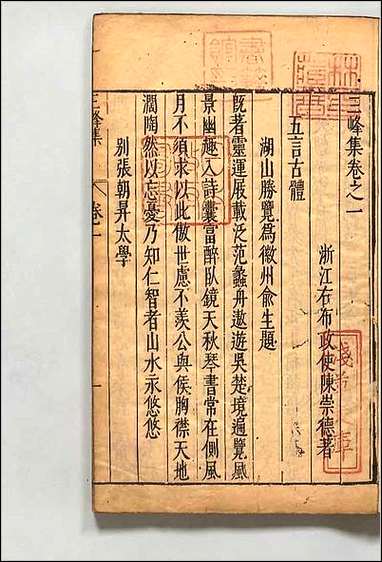 三峰集卷之一
浙江右布政使陳崇德著
五言古體
湖山勝覽為徽州俞生題
既著靈運屐載泛范蠡舟遨遊吳楚境遍覽風
景幽趣入詩囊富醉臥鏡天秋琴書常在側風
月不須求以此傲世慮不羨公與侯胸襟天地
濶陶然以忘憂乃知仁智者山水永悠悠
別張朝昇太學
三峰集
卷一
一